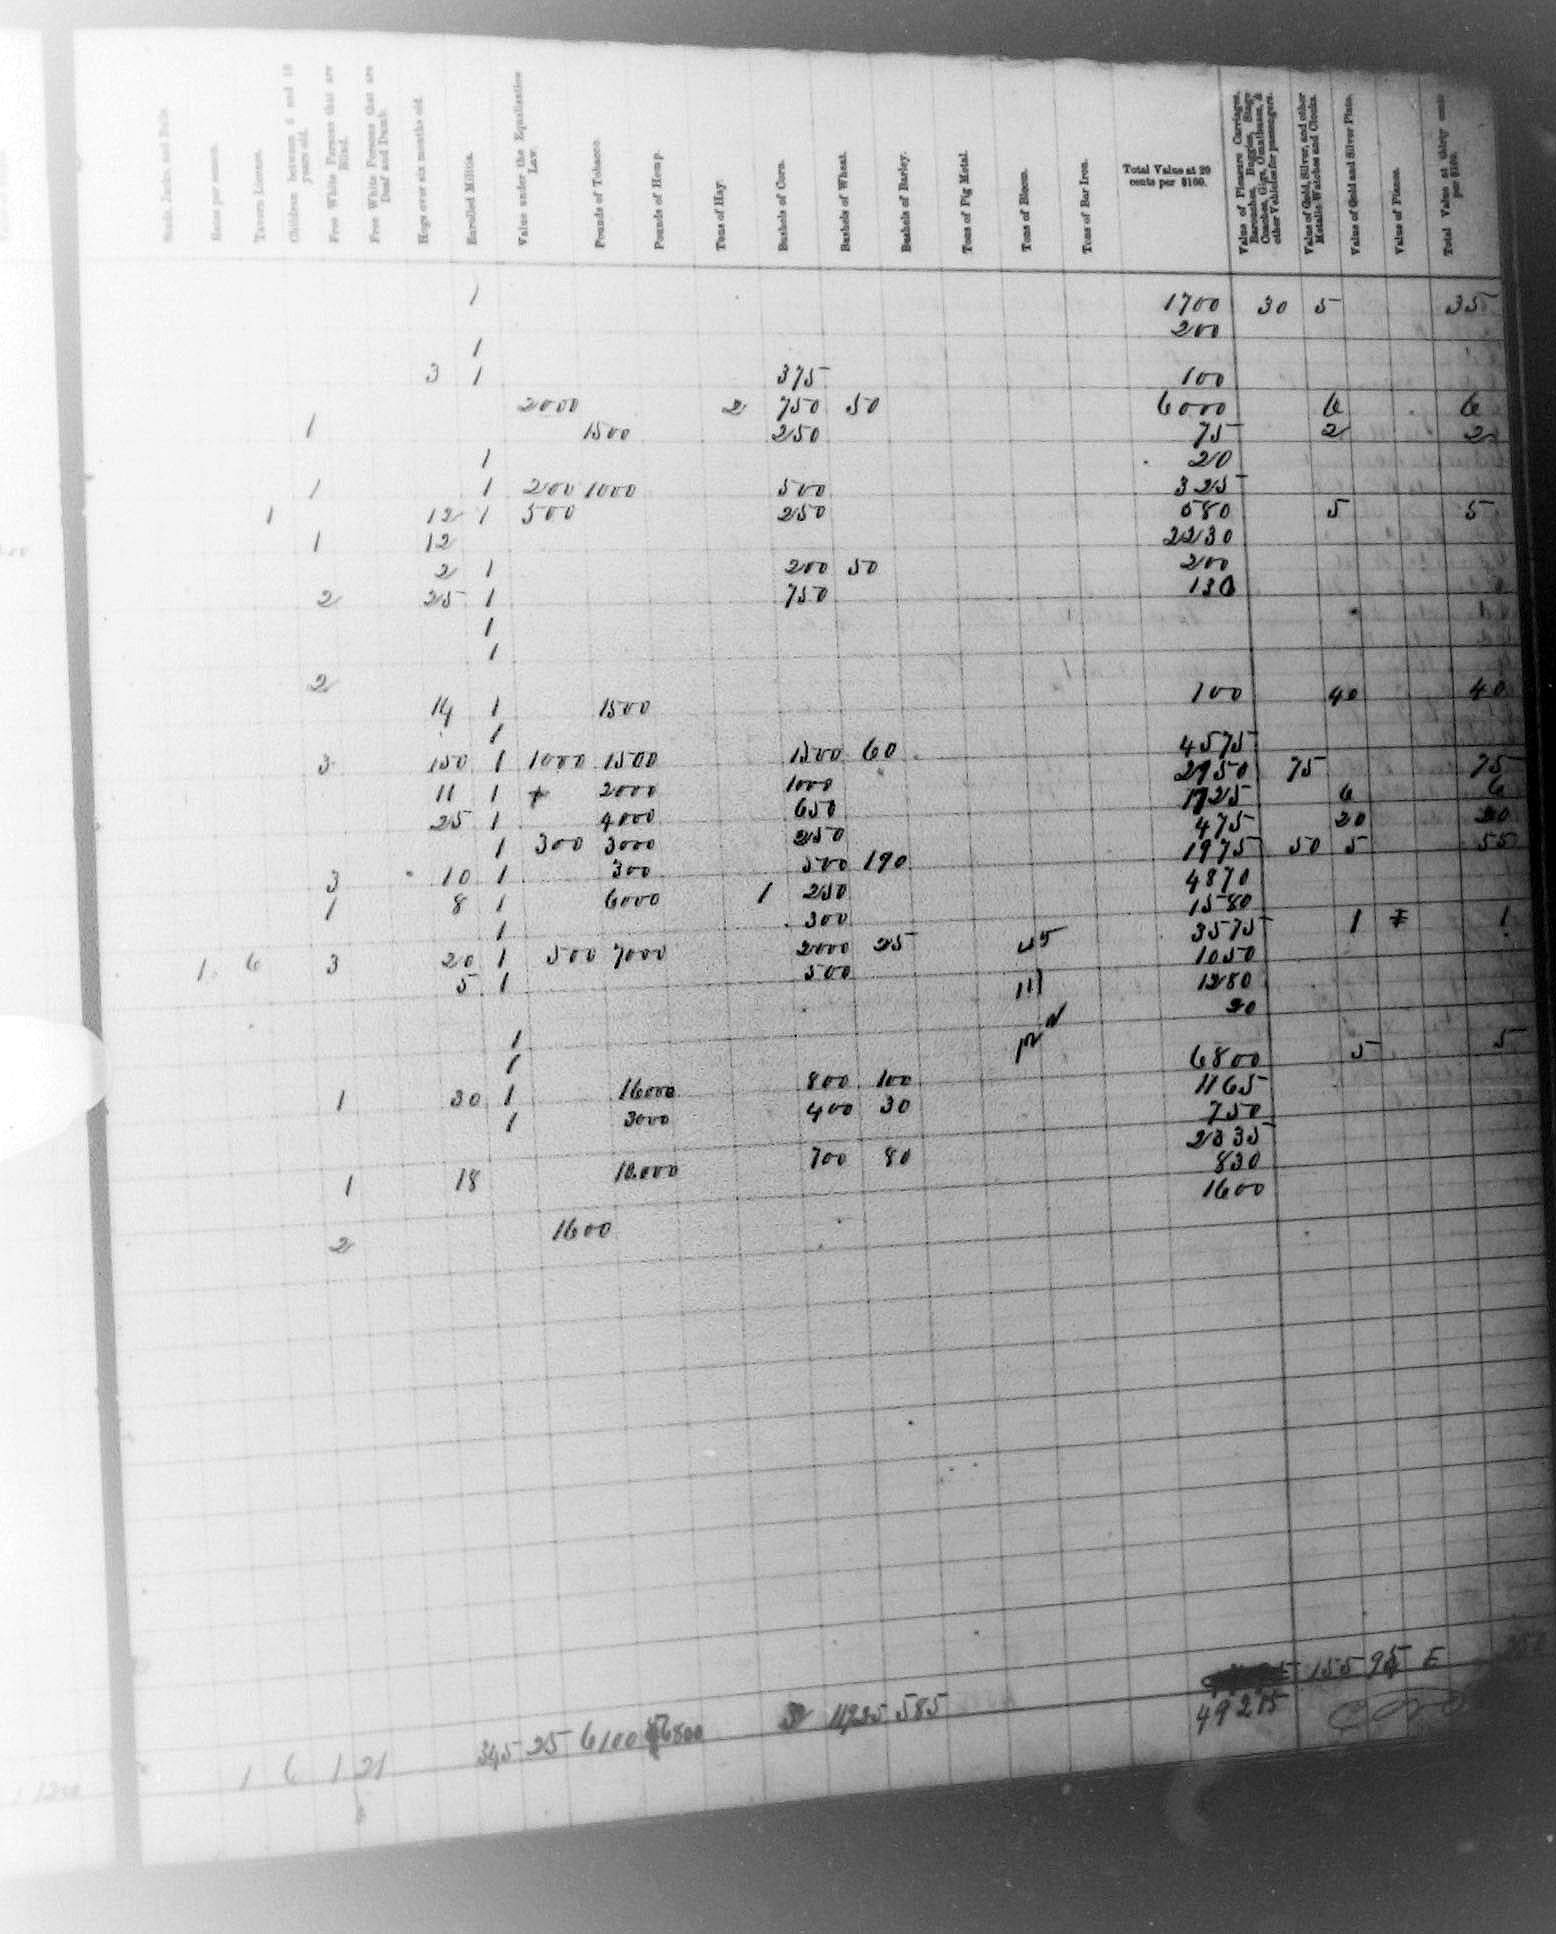 Studs, Jacks, and Bulls.
Rates per season.
Tavern License.
Children between 6 and 18 years old.
Free White Persons that are Blind.
Free White Persons that are Deaf and Dumb.
Hogs over six months old.
Enrolled Militia.
Value under the Equalization Law.
Pounds of Tobacco.
Pounds of Hemp.
Tons of Hay.
Bushels of Corn.
Bushels of Wheat.
Bushels of Barley.
Tons of Pig Metal.
Tons of Bloom.
Tons of Bar Iron.
Total Value at 20 cents per $100.
Value of Pleasure Carriages, Barouches, Buggies, Stage Coaches, Gigs, Omnibuses, & other Vehicles for passengers.
Value of Gold, Silver, and other Metallic Watches and Clocks.
Value of Gold and Silver Plate.
Value of Pianos.
Total Value at thirty cents per $100.
1 1700 30 5 35
200
1
3 1 375 100
2000 2 750 50 6000 6 6
1 1500 250 75 2 2
1 20
1 1 200 1000 500 325
1 12 1 500 250 580 5 5
1 12 2230
2 1 200 50 200
2 25 1 750 130
1
1
2 100 40 40
14 1 1500
1 4575
3 150 1 1000 1500 1500 60 2950 75 75
11 1 2000 1000 1725 6 6
25 1 4000 650 475 20 20
1 300 3000 250 1975 50 5 55
3 10 1 300 500 190 4870
1 8 1 6000 1 250 1580
1 300 3575 1 1
1 6 3 20 1 500 7000 2000 25 1050
5 1 500 1280
20
1
1 6800 5 5
1 30 1 16000 800 100 1165
1 3000 400 30 750
2335
1 18 10.000 700 80 830
1600
2 1600
155 95 E
49275
345 25 6100 6800 11925 585
1 6 1 21
1200